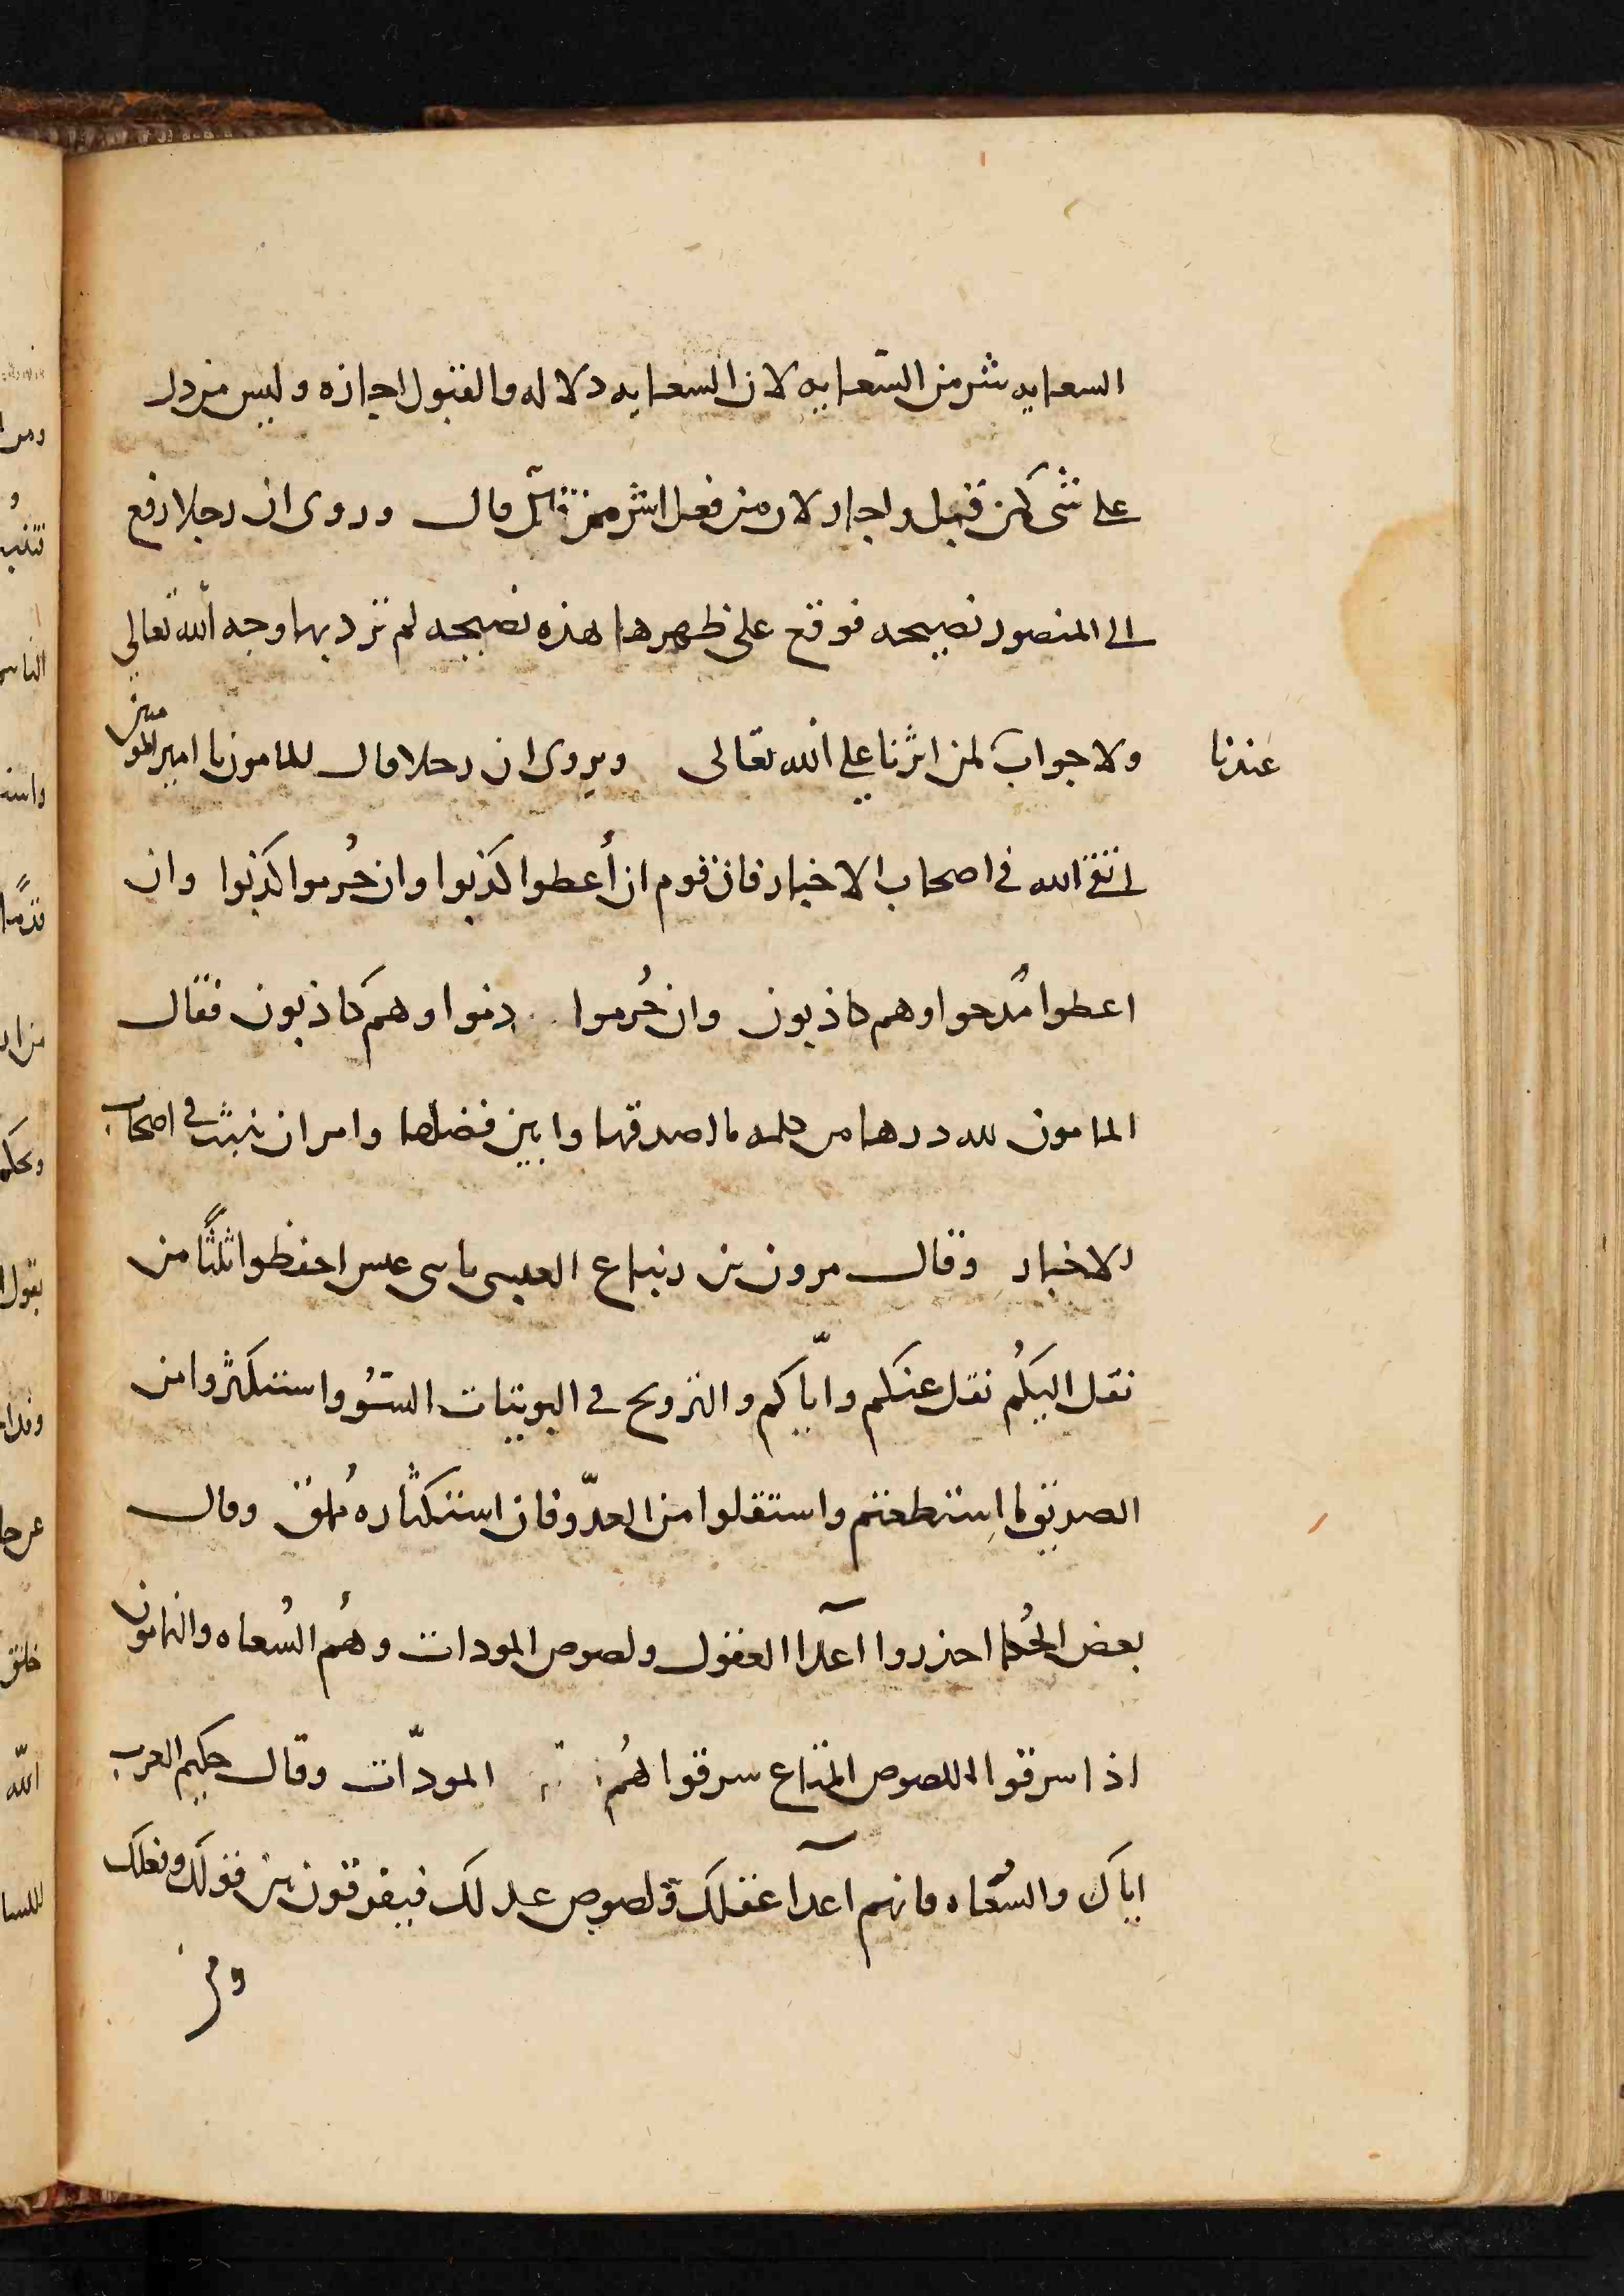 السعايه شر من السعايه لان السعايه دلاله والقبول اجازه وليس من دل
على شى كمن قبل واجاز لان من فعل اشر ممن قال وروى ان رجلا رفع
الى المنصور نصيحه فوقع على ظهرها هذه نصيحه لم ترد بها وجه الله تعالى
عندنا
ولا جواب لمن اثرنا على الله تعالى ويروى ان رجلا قال للمامون يا امير المومنين
اتق الله فى اصحاب الاخبار فان قوم ان أعطوا كذبوا وان حُرموا كذبوا وان
اعطوا مُدحوا وهم كاذبون وان حُرموا ذموا وهم كاذبون فقال
المامون لله درها من كلمه ما اصدقها وابين فضلها وامر ان تثبت فى اصحاب
الاخبار وقال مرون بن زنباع العبسى يا بنى عبس احفظوا ثلثًا من
نقل اليكُم نقل عنكم وايّاكم والتزويج فى البويتات السُو واستكثروا من
الصديق ما استطعتم واستقلوا من العدّو فان استكثاره مُلق وقال
بعض الحُكما احذروا آعدا العقول ولصوص المودات وهُم السُعاه والنمامون
اذا سرقوا اللصوص المتاع سرقوا هُم المودّات وقال حكيم العرب
اياك والسُعاه فانهم اعدآ عقلك ولصوص عدلك فيفرقون بين قولك وفعلك
ومن